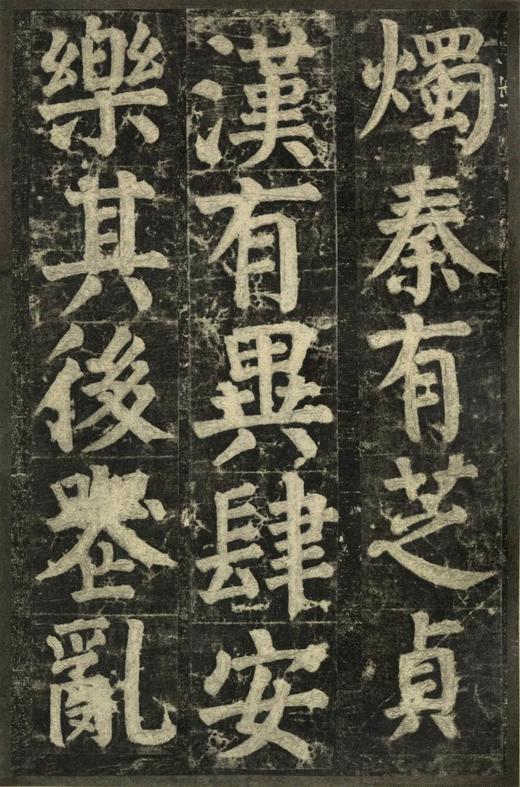 燭秦有芝貞
漢有異肆安
樂其後喪亂